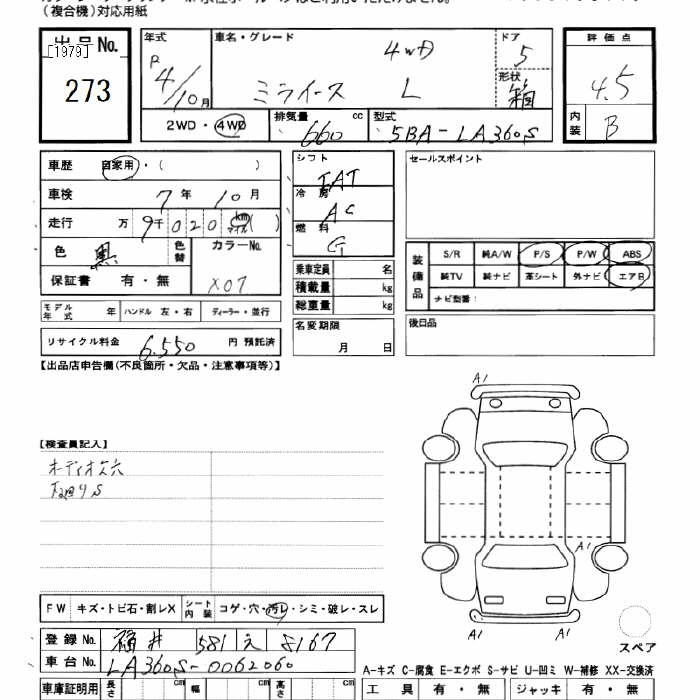 (複合機)対応用紙
出品No.
[1979]
273
年式
R
4/10月
車名・グレード
4WD
ミライース L
ドア
5
形状
箱
評価点
4.5
内装
B
2WD・4WD
排気量
660
cc
型式
5BA-LA360S
車歴 自家用・( )
車検 7年 10月
走行 万 9千 0 2 0 km マイル ( )
色 黒
色替
カラーNo.
X07
保証書 有・無
モデル年式 年 ハンドル 左・右 ディーラー・並行
リサイクル料金 6.550 円 預託済
シフト
IAT
冷房
AC
燃料
G
乗車定員 名
積載量 kg
総重量 kg
名変期限
月 日
セールスポイント
装備品
S/R 純A/W P/S P/W ABS
純TV 純ナビ 革シート 外ナビ エアB
ナビ型番:
後日品
【出品店申告欄(不良箇所・欠品・注意事項等)】
【検査員記入】
オーディオ欠穴
A1
A1
A1
A1
スペア
FW キズ・トビ石・割レX シート内装 コゲ・穴・汚レ・シミ・破レ・スレ
登録No. 福井 581 え 8167
車台No. LA360S-0062060
A-キズ C-腐食 E-エクボ S-サビ U-凹ミ W-補修 XX-交換済
車庫証明用 長さ cm 幅 cm 高さ cm
工具 有・無 ジャッキ 有・無